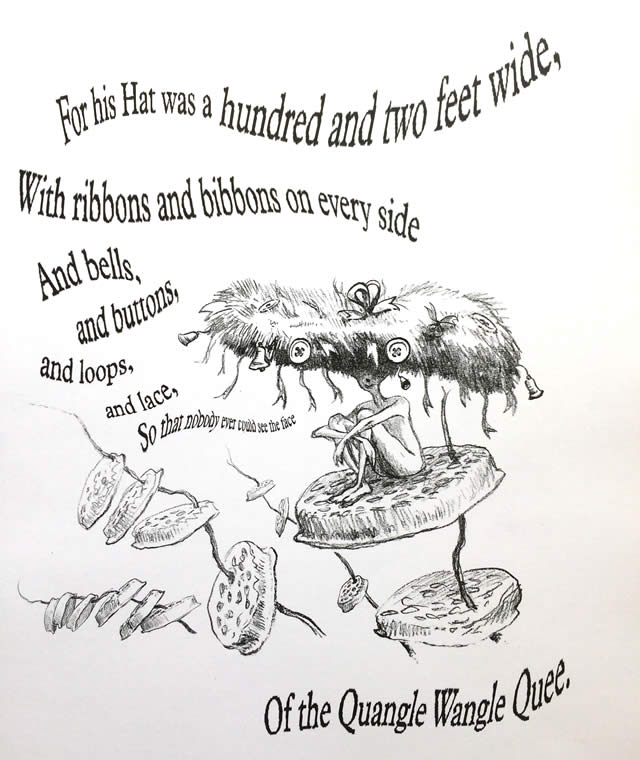 For his Hat was a hundred and two feet wide,
With ribbons and bibbons on every side
And bells,
and buttons,
and loops,
and lace,
So that nobody ever could see the face
Of the Quangle Wangle Quee.